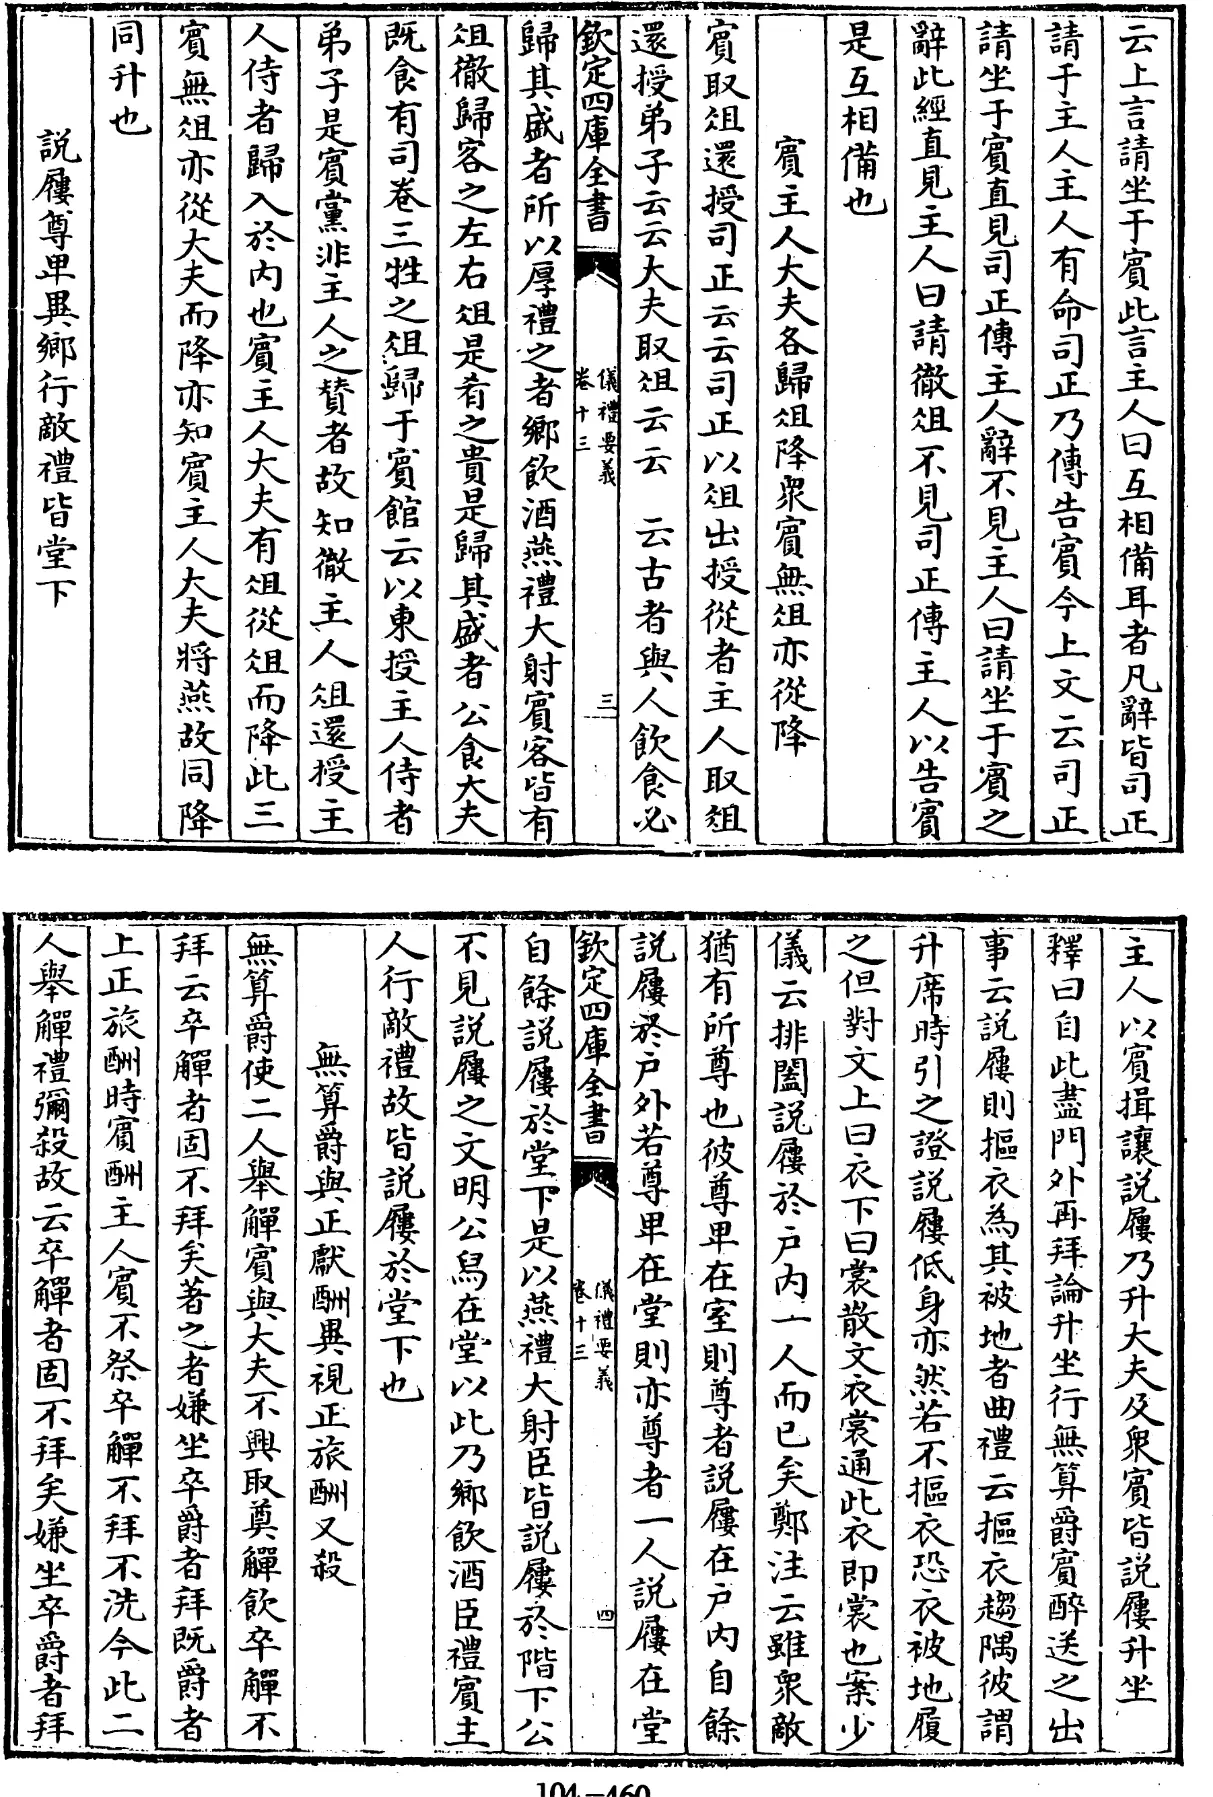 云上言請坐于賓此言主人曰互相備耳者凡辭皆司正
請于主人主人有命司正乃傳告賓今上文云司正
請坐于賓直見司正傳主人辭不見主人曰請坐于賓之
辭此經直見主人曰請徹俎不見司正傳主人以告賓
是互相備也
賓主人大夫各歸俎降衆賓無俎亦從降
賓取俎還授司正云云司正以俎出授從者主人取俎
還授弟子云云大夫取俎云云 云古者與人飲食必
欽定四庫全書
儀禮要義
卷十三
三
歸其盛者所以厚禮之者鄉飲酒燕禮大射賓客皆有
俎徹歸客之左右俎是肴之貴是歸其盛者公食大夫
既食有司卷三牲之俎歸于賓館云以東授主人侍者
弟子是賓黨非主人之贊者故知徹主人俎還授主
人侍者歸入於內也賓主人大夫有俎從俎而降此三
賓無俎亦從大夫而降亦知賓主人大夫將燕故同降
同升也
說屨尊卑異鄉行敵禮皆堂下
主人以賓揖讓說屨乃升大夫及衆賓皆說屨升坐
釋曰自此盡門外再拜論升坐行無算爵賓醉送之出
事云說屨則摳衣為其被地者曲禮云摳衣趨隅彼謂
升席時引之證說屨低身亦然若不摳衣恐衣被地履
之但對文上曰衣下曰裳散文衣裳通此衣即裳也案少
儀云排闔說屨於戶內一人而已矣鄭注云雖衆敵
猶有所尊也彼尊卑在室則尊者說屨在戶內自餘
說屨於戶外若尊卑在堂則亦尊者一人說屨在堂
欽定四庫全書
儀禮要義
卷十三
四
自餘說屨於堂下是以燕禮大射臣皆說屨於階下公
不見說屨之文明公舄在堂以此乃鄉飲酒臣禮賓主
人行敵禮故皆說屨於堂下也
無算爵與正獻酬異視正旅酬又殺
無算爵使二人舉觶賓與大夫不興取奠觶飲卒觶不
拜云卒觶者固不拜矣著之者嫌坐卒爵者拜既爵者
上正旅酬時賓酬主人賓不祭卒觶不拜不洗今此二
人舉觶禮彌殺故云卒觶者固不拜矣嫌坐卒爵者拜